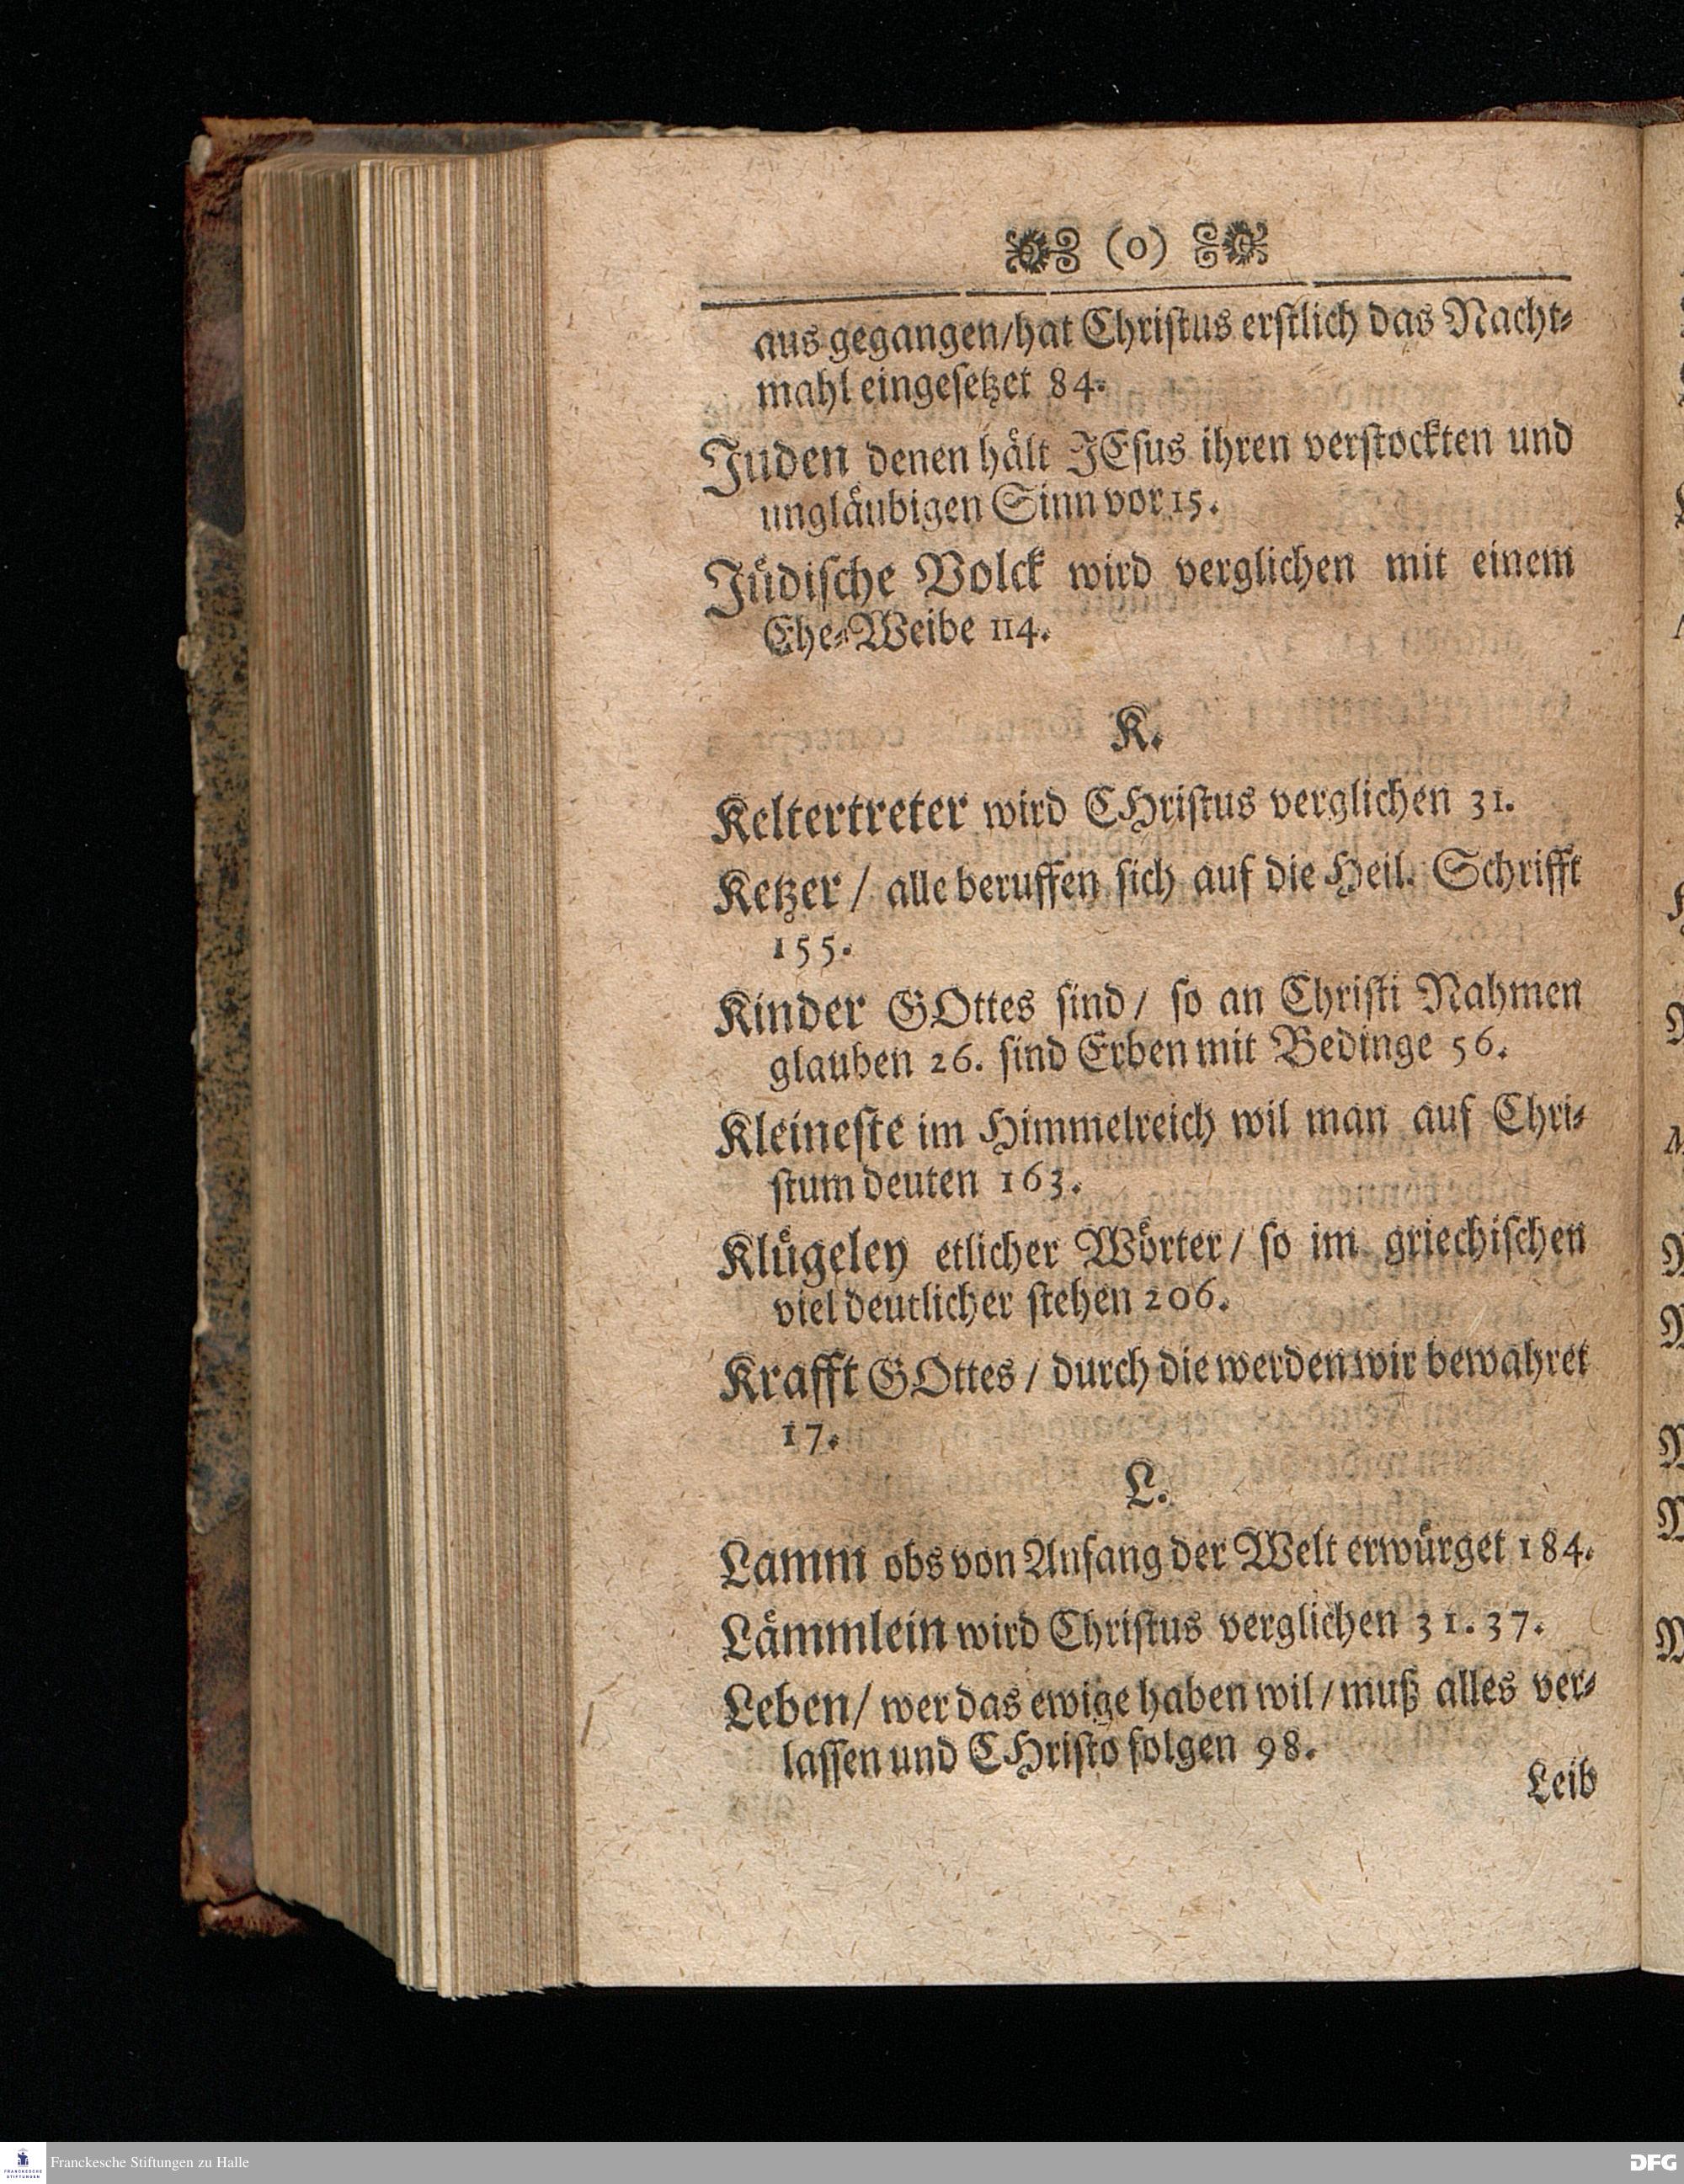 (o)
aus gegangen/hat Christus erstlich das Nacht-
mahl eingesetzet 84.
Juden denen hält JEsus ihren verstockten und
ungläubigen Sinn vor 15.
Jüdische Volck wird verglichen mit einem
Ehe-Weibe 114.
K.
Keltertreter wird CHristus verglichen 31.
Ketzer / alle beruffen sich auf die Heil. Schrifft
155.
Kinder GOttes sind / so an Christi Nahmen
glauben 26. sind Erben mit Bedinge 56.
Kleineste im Himmelreich wil man auf Chri-
stum deuten 163.
Klügeley etlicher Wörter / so im griechischen
viel deutlicher stehen 206.
Krafft GOttes / durch die werden wir bewahret
17.
L.
Lamm obs von Anfang der Welt erwürget 184.
Lämmlein wird Christus verglichen 31. 37.
Leben / wer das ewige haben wil / muß alles ver-
lassen und CHristo folgen 98.
Leib
Franckesche Stiftungen zu Halle
DFG